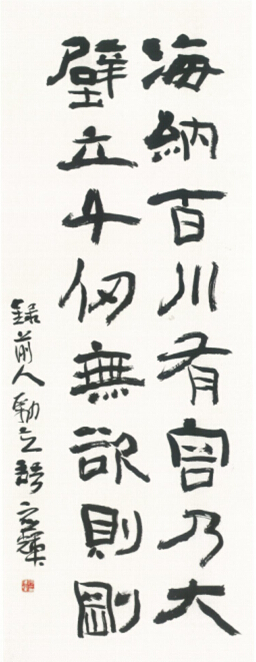 海納百川有容乃大
壁立千仞無欲則剛
錄前人勵志語